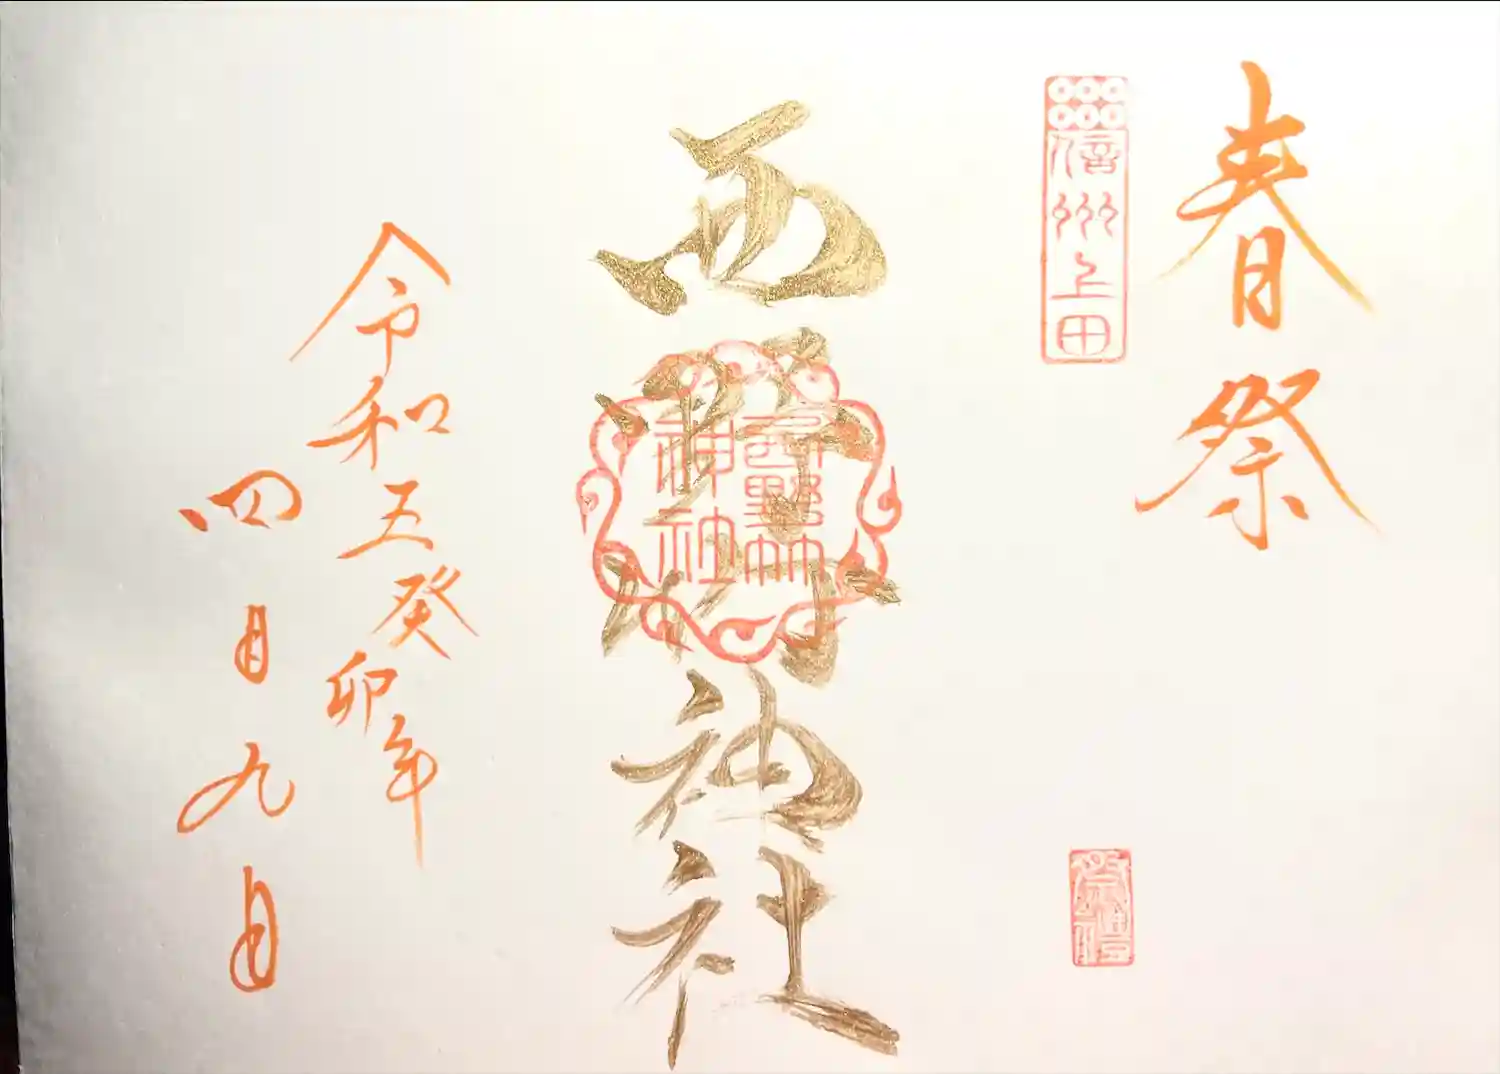 春祭
信州上田
西野竹神社
西野竹
神社
令和五癸卯年
四月九日